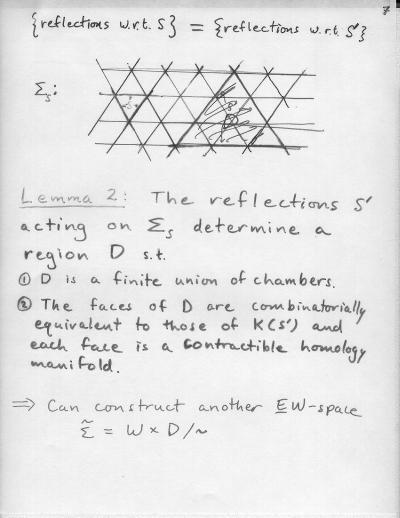 7
{reflections w.r.t. S} = {reflections w.r.t. S'}
Σ_s:
Lemma 2: The reflections S'
acting on Σ_s determine a
region D s.t.
① D is a finite union of chambers.
② The faces of D are combinatorially
equivalent to those of K(S') and
each face is a contractible homology
manifold.
⇒ Can construct another EW-space
Σ̃ = W × D/~